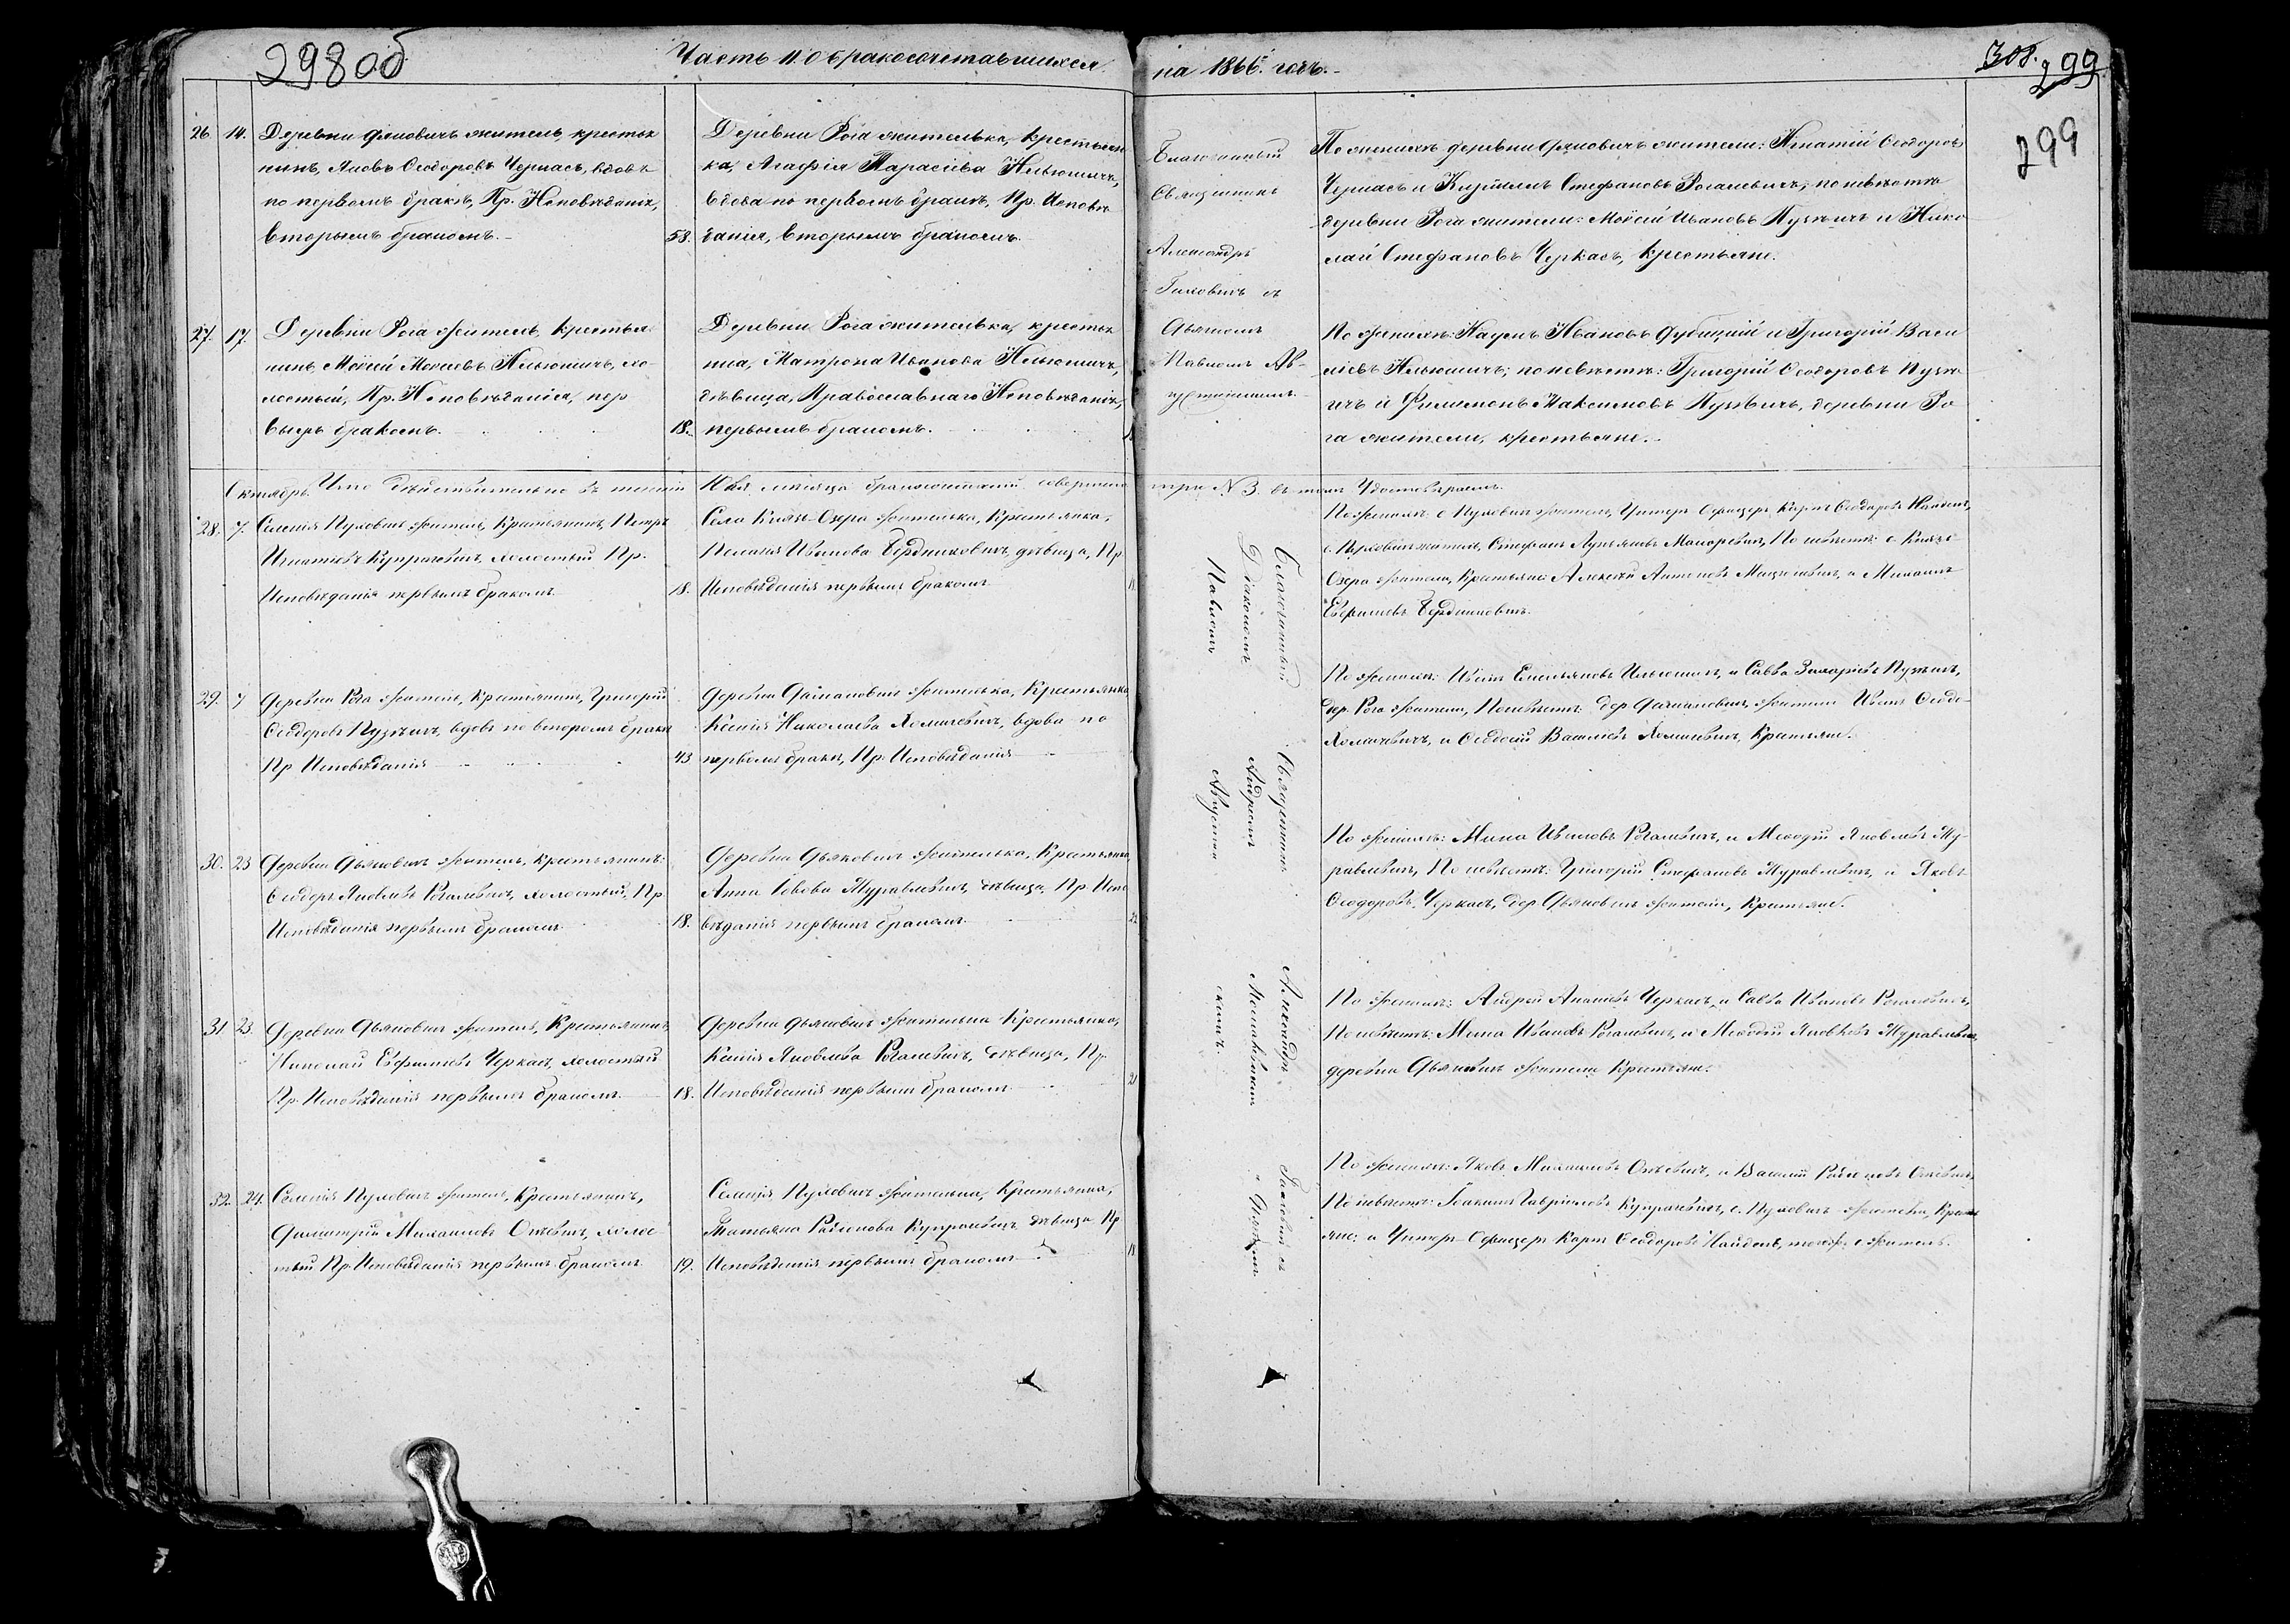 298 об
Часть II. О бракосочетавшихся
на 1866. годъ.
308. 299
299
26. 14. Деревни Дяковичъ житель, крестья
нинъ, Яковъ Ѳеодоровъ Черкасъ, вдовъ
по первомъ бракѣ, Пр. Исповѣданія,
вторымъ бракомъ.
53.
Деревни Рога жителька, крестьян
ка, Агафія Тарасіева Ильюшичъ,
вдова по первомъ бракѣ, Пр. Исповѣ
данія, вторымъ бракомъ.
Благочинный
Священникъ
Александръ
Гаховичъ съ
Дьякомъ
Павломъ Ав-
густиномъ
По женихѣ деревни Дяковичъ жители: Игнатій Ѳеодоровъ
Черкасъ и Кириллъ Стефановъ Рогалевичъ; по невѣстѣ
деревни Рога жители: Моисей Ивановъ Пузѣичъ и Нико
лай Стефановъ Черкасъ, крестьяне.
27. 17. Деревни Рога житель, крестья
нинъ, Моисей Моисеевъ Ильюшичъ, хо
лостый, Пр. Исповѣданія, пер
вымъ бракомъ.
18.
Деревни Рога жителька, крестья
нка, Матрона Иванова Ильюшичъ,
дѣвица, Православнаго Исповѣданія,
первымъ бракомъ.
По женихѣ: Наумъ Ивановъ Дубицкій и Григорій Васи
ліевъ Ильюшичъ; по невѣстѣ: Григорій Ѳеодоровъ Пузѣ
ичъ и Филимонъ Максимовъ Пузѣвичъ, деревни Ро
га жители, крестьяне.
Октябрь. Что дѣйствительно въ теченіи
мѣсяца бракосочетаній совершено
три № 3. въ томъ Удостовѣряемъ.
28. 7. Селенія Пуховичъ житель, Крестьянинъ, Петръ
Игнатіевъ Купраневичъ, холостый Пр.
Исповѣданія первымъ бракомъ
18.
Села Князь-Озера жителька, Крестьянка,
Пелагія Иванова Бердниковичъ, дѣвица, Пр.
Исповѣданія первымъ бракомъ
18
По женихѣ: с. Пуховичъ житель, Унтеръ Офицеръ Карпъ Ѳеодоровъ Найденъ,
с. Пуховичъ житель, Стефанъ Лукъяновъ Макаревичъ, По невѣстѣ: с. Князь
Озера жители, Крестьяне: Алексѣй Антоновъ Мацкевичъ, и Михаилъ
Евфимовъ Бердниковичъ.
Благочинный Священникъ Александръ Гаховичъ съ
Діакономъ Андреемъ
Павломъ Августин скимъ.
29. 7 Деревни Рога житель, Крестьянинъ, Григорій
Ѳеодоровъ Пузѣичъ, вдовъ по второмъ бракѣ
Пр Исповѣданія
43
Деревни Дяковичъ жителька, Крестьянка
Ксенія Николаева Хомичевичъ, вдова по
первомъ бракѣ, Пр. Исповѣданія
По женихѣ: Иванъ Емельяновъ Ильюшичъ, и Савва Захаріевъ Пузѣичъ,
дер. Рога жители, По невѣстѣ: дер. жители Иванъ Ѳеодо-
Хомичевичъ, и Ѳеодосій Васильевъ Хомичевичъ, Крестьяне.
30. 23 Деревни Дьяковичъ житель, крестьянинъ:
Ѳеодоръ Яковлевъ Рогалевичъ, холостый, Пр.
Исповѣданія первымъ бракомъ
18.
Деревни Дьяковичъ жителька, Крестьянка,
Анна Іовова Журавлевичъ, дѣвица, Пр. Испо
вѣданія первымъ бракомъ
22
По женихѣ: Мина Ивановъ Рогалевичъ, и Меѳодій Яковлевъ Жу-
равлевичъ, По невѣстѣ: Григорій Стефановъ Журавлевичъ, и Яковъ
Ѳеодоровъ Черкасъ, дер. Дьяковичъ жители, Крестьяне.
31. 23. Деревни Дьяковичъ житель, Крестьянинъ
Николай Евфимовъ Черкасъ, холостый
Пр. Исповѣданія первымъ бракомъ.
18.
Деревни Дьяковичъ жителька Крестьянка,
Ксенія Яковлева Рогалевичъ, дѣвица, Пр.
Исповѣданія первымъ бракомъ
21
По женихѣ: Андрей Ананіевъ Черкасъ, и Савва Ивановъ Рогалевичъ,
По невѣстѣ: Мина Ивановъ Рогалевичъ, и Меѳодій Яковлевъ Журавлевичъ,
деревни Дьяковичъ жители Крестьяне.
32. 24. Селенія Пуховичъ житель, Крестьянинъ,
Димитрій Михаиловъ Опѣвичъ, холос
тый Пр. Исповѣданія первымъ бракомъ
19.
Селенія Пуховичъ жителька, Крестьянка,
Татьяна Купраневичъ дѣвица Пр
Исповѣданія первымъ бракомъ
18
По женихѣ: Яковъ Михаиловъ Опѣвичъ, и Василій
По невѣстѣ: Іоакимъ Гавріиловъ Купраневичъ, с. Пуховичъ жители, Кресть
яне: и Унтеръ-Офицеръ Карпъ Ѳеодоровъ Найденъ, житель.